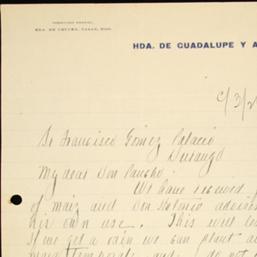 HDA. DE GUADALUPE Y A
Sr Francisco Gómez Palacio
Durango
My dear Don Pancho,
We have received
of maiz and Don Antonio advises
his own use. This will le
If we get a rain we can plant a
and do not